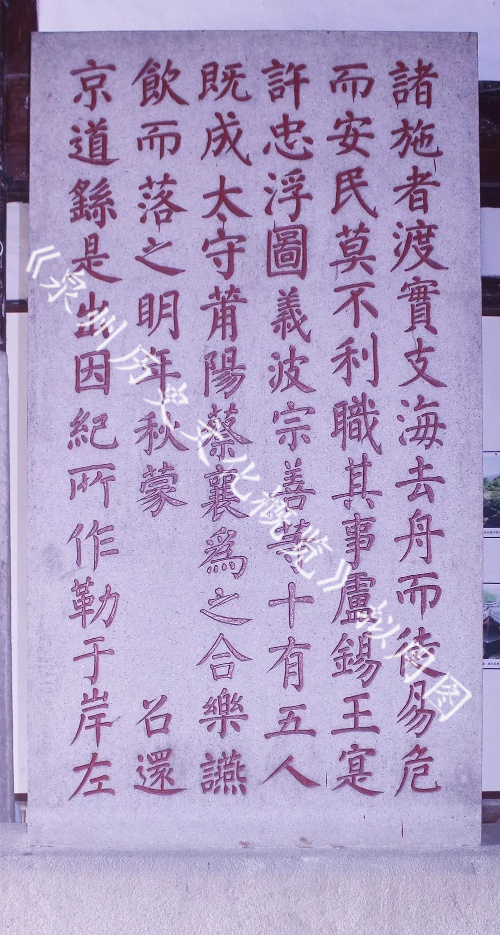 諸施者渡實支海去舟而徒易危
而安民莫不利職其事盧錫王寔
許忠浮圖義波宗善等十有五人
既成太守莆陽蔡襄為之合樂讌
飲而落之明年秋蒙召還
京道繇是出因紀所作勒于岸左
《泉州历史文化概览》拟用图